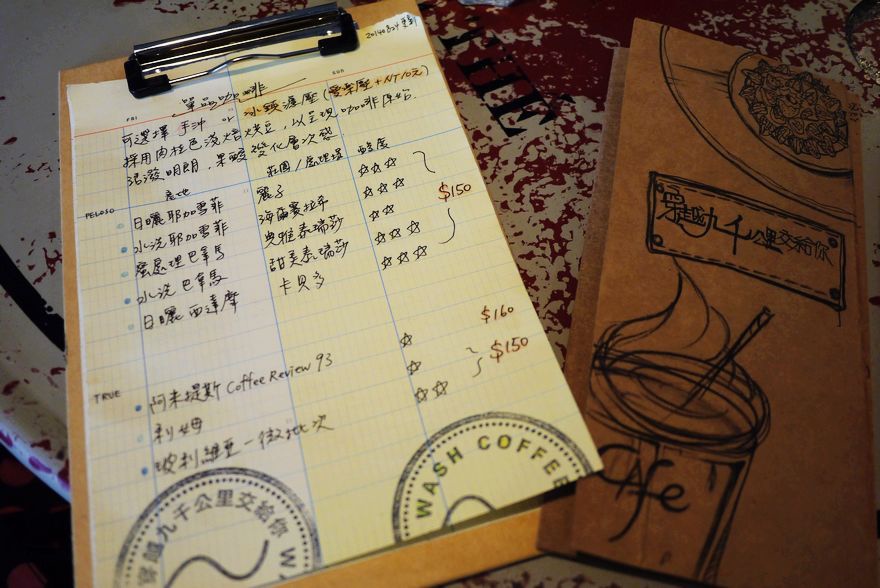 20140824 更新
單品咖啡
FRI
SUN
可選擇 手沖 or 冰頭濃壓 (雙果壓 + NT10元)
採用肉桂色淺焙烘豆，以呈現咖啡原始
活潑明朗，果酸變化層次變
產地 莊園/處理場 酸度
PELOSO
日曬耶加雪菲 麗子 ☆☆☆
水洗耶加雪菲 海爾賽拉希 ☆☆☆ $150
蜜處理巴拿馬 奧雅泰瑞莎 ☆☆
水洗巴拿馬 甜美泰瑞莎 ☆☆☆
日曬西達摩 卡貝多 ☆☆☆
TRUE
阿朱提斯 Coffee Review 93 ☆ $160
利姆 ☆ $150
玻利維亞-微批次 ☆☆
穿越九千公里交給你 W
WASH COFFEE
穿越九千
公里交給你
CAfe